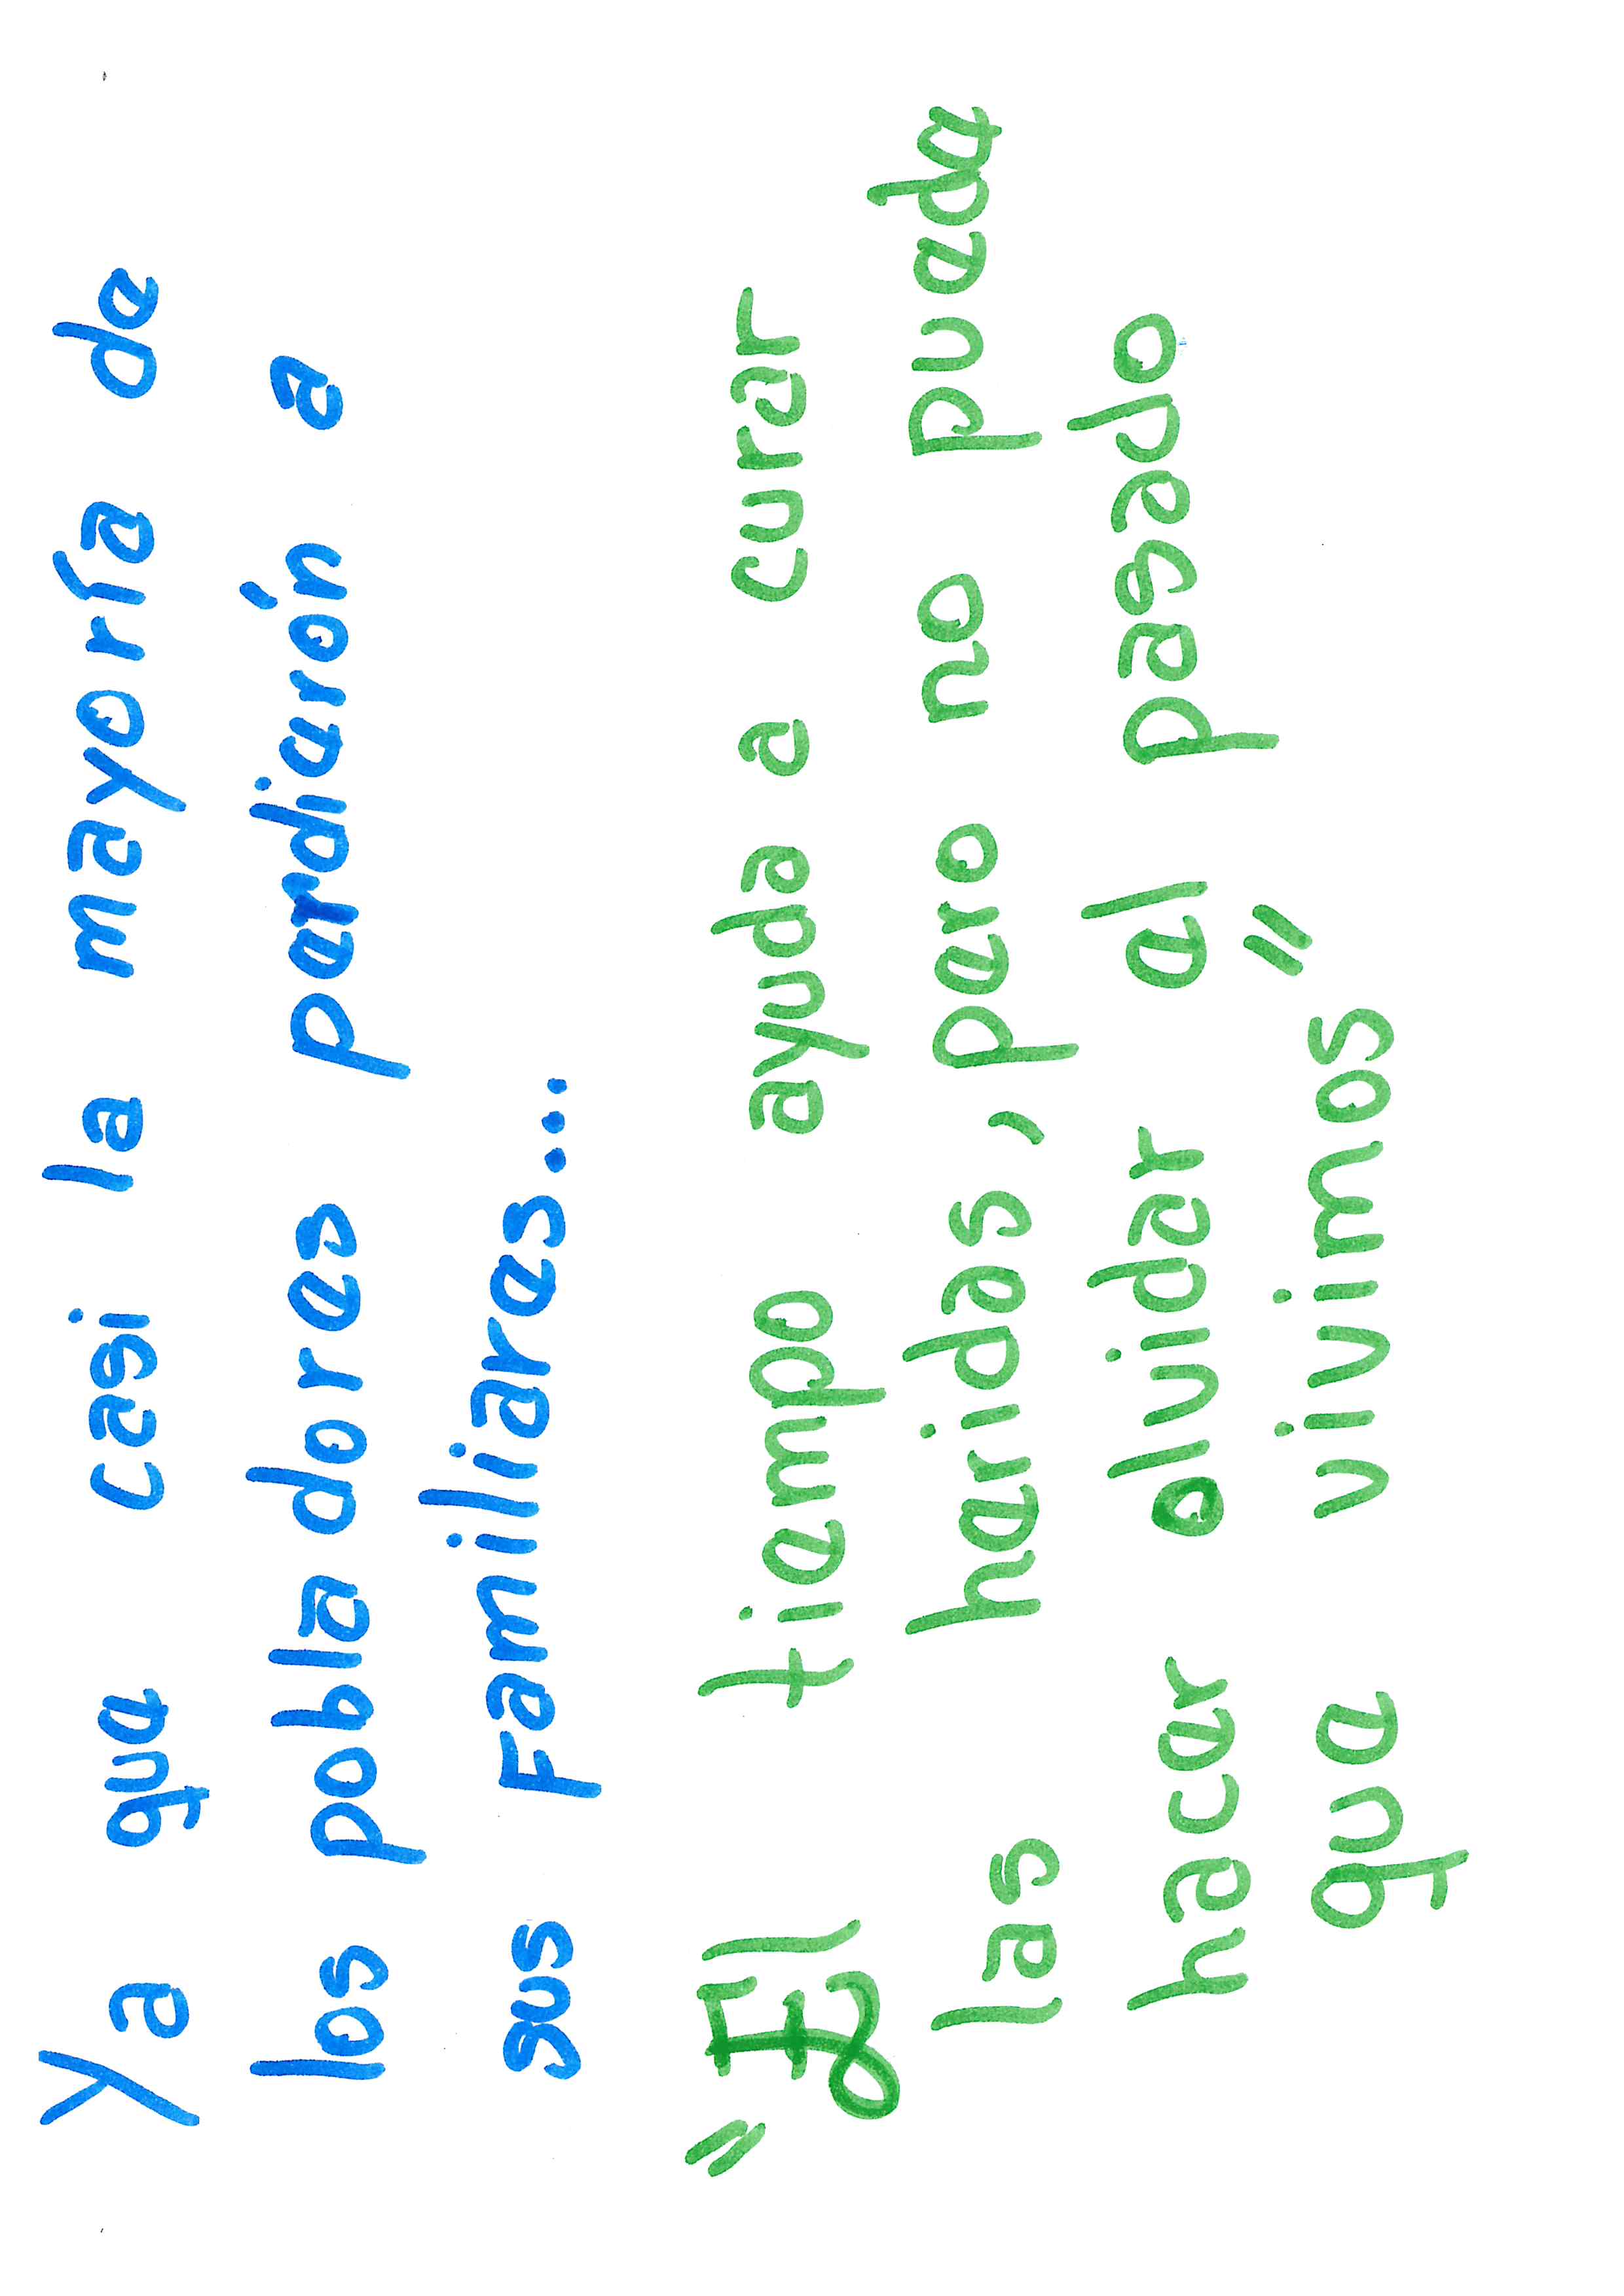 Ya que casi la mayoría de
los pobladores perdierón a
sus Familiares...
"El tiempo ayuda a curar
las heridas, pero no puede
hacer olvidar el pasado
que vivimos"